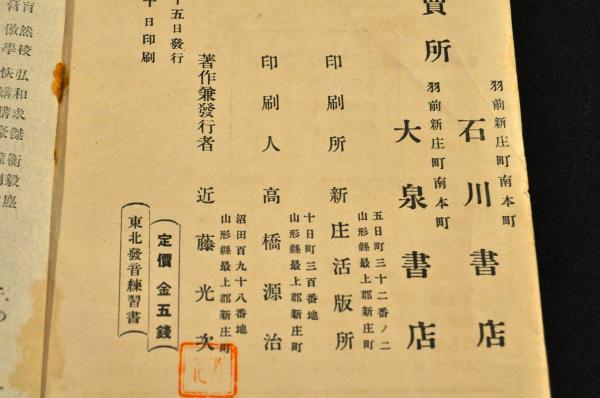 賣所
羽前新庄町南本町
石川書店
羽前新庄町南本町
大泉書店
五日町三十二番ノ二
山形縣最上郡新庄町
印刷所 新庄活版所
十日町三百番地
山形縣最上郡新庄町
印刷人 高橋源治
沼田百九十八番地
山形縣最上郡新庄町
著作兼發行者 近藤光次
十五日發行
十日印刷
定價金五錢
東北發音練習書
傲然
學校
恢弘
講和
勝求
豪傑